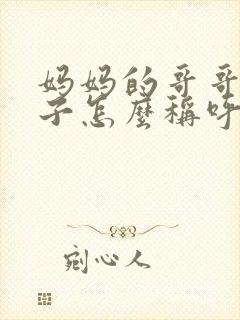 妈妈的哥哥
子怎麽稱呼
剜心人